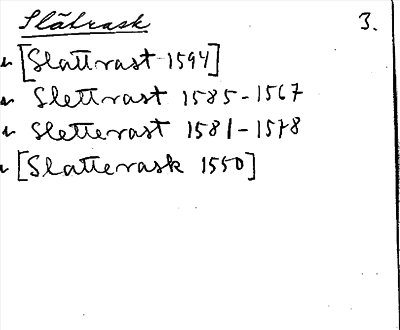 Slätrask 3.
[Slattrast 1594]
Slettrast 1585-1567
Sletterast 1581-1578
[Slatterask 1550]